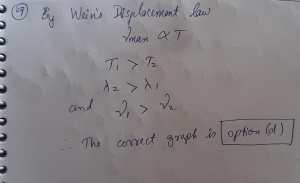 (29) By Wein's Displacement law
νmax ∝ T
T₁ > T₂
λ₂ > λ₁
and ν₁ > ν₂
∴ The correct graph is option (d)